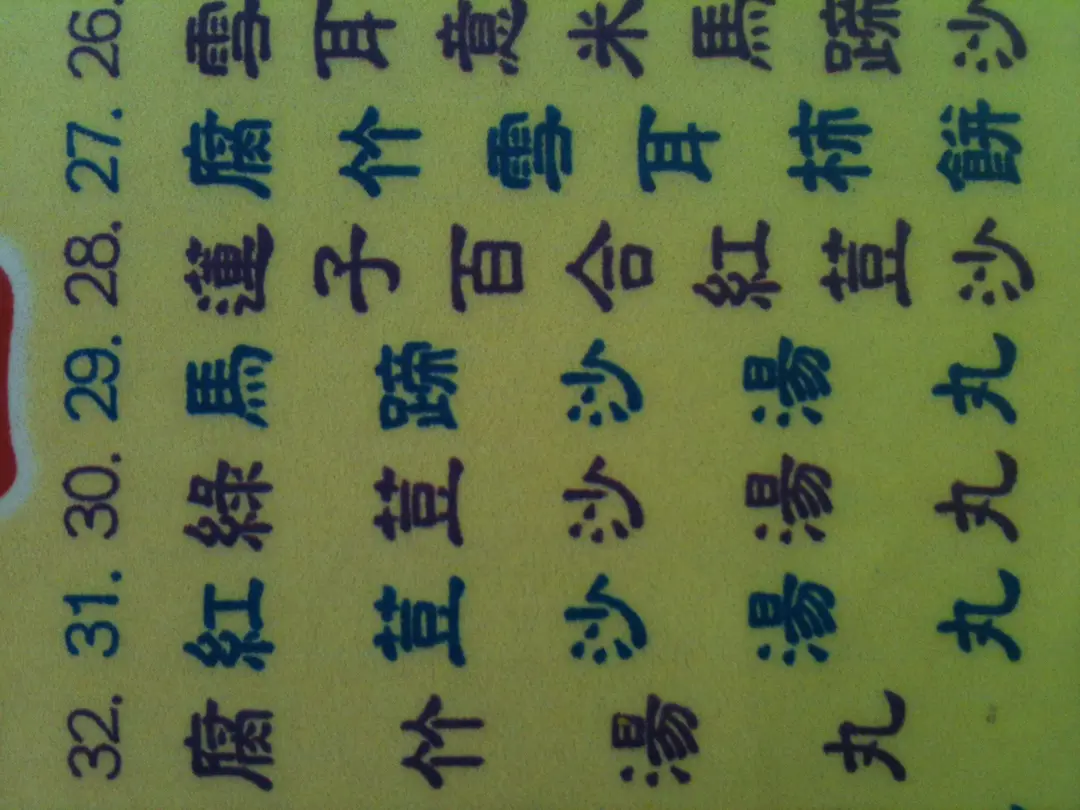 26. 雪耳薏米馬蹄沙
27. 腐竹雪耳柿餅
28. 蓮子百合紅荳沙
29. 馬蹄沙湯丸
30. 綠荳沙湯丸
31. 紅荳沙湯丸
32. 腐竹湯丸